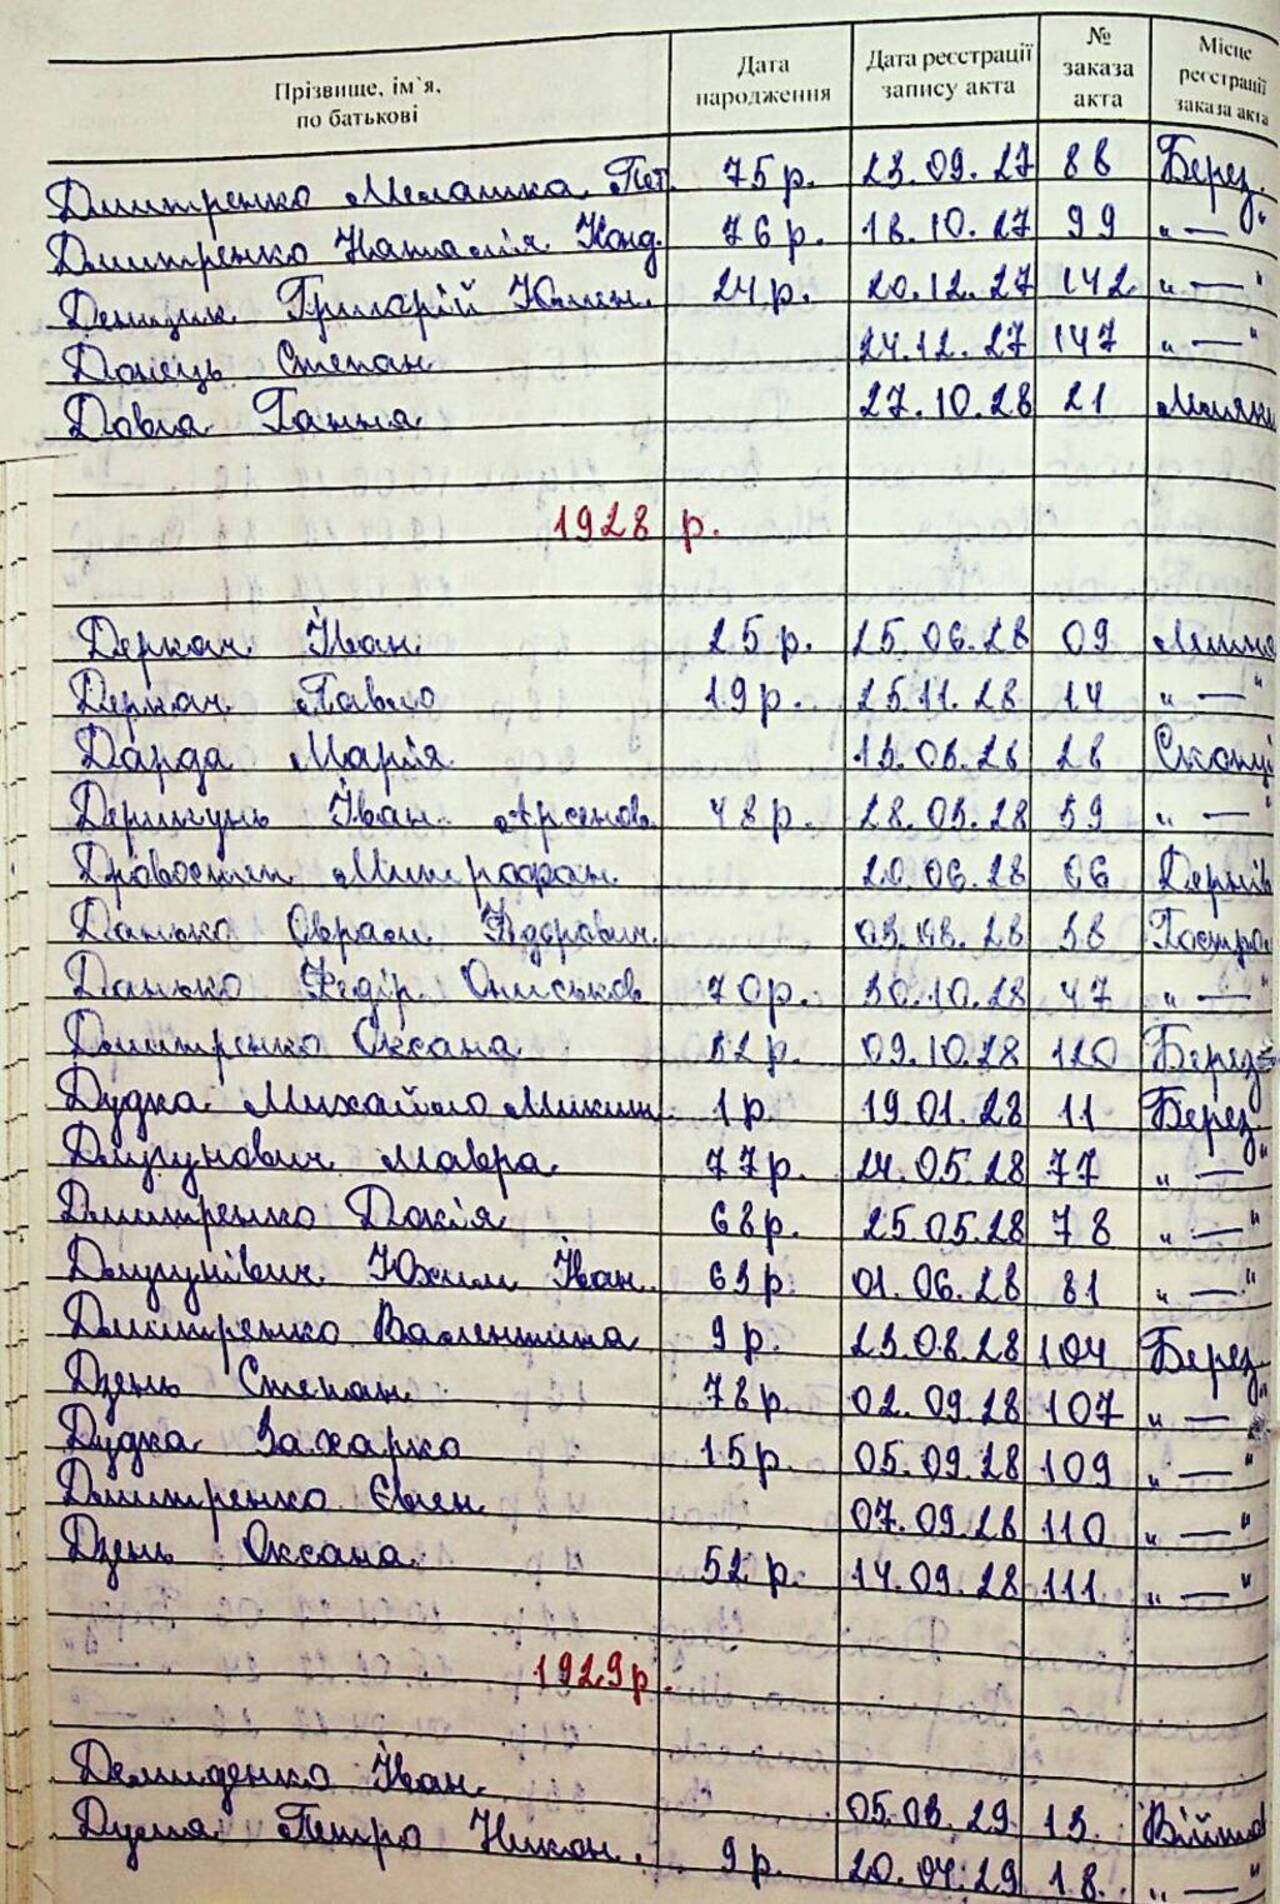 Прізвище, ім`я, по батькові | Дата народження | Дата реєстрації запису акта | № заказа акта | Місце реєстрації заказа акта
Дмитренко Мелашка Пет. 75 р. 23.09.27 88 Берез.
Дмитренко Наталія Конд. 76 р. 18.10.27 99 „ — "
Денищик Григорій Юхимен. 24 р. 20.12.27 142 „ — "
Донець Степан 24.12.27 147 „ — "
Довга Ганна 27.10.28 21
1928 р.
Деркач Іван 25 р. 25.06.28 09
Деркач Павло 19 р. 25.11.28 14 „ — "
Дарда Марія 13.08.28 28
Дерикунь Іван Арсенов. 48 р. 28.03.28 59 „ — "
Дровостеп Митрофан 20.06.28 06
Данько Оврам Федорович 03.08.28 38
Данько Федір Ониськов 70 р. 30.10.28 47 „ — "
Дмитренко Оксана 09.10.28 120 Берез
Дудка Михайло Микит. 1 р. 19.01.28 11 Берез.
Джугунович Мавра 77 р. 24.05.28 77 „ — "
Дмитренко Докія 68 р. 25.05.28 78 „ — "
Джугунівич Юхим Іван. 63 р. 01.06.28 81 „ — "
Дмитренко Валентина 9 р. 23.08.28 104 Берез.
Дзень Степан 78 р. 02.09.28 107 „ — "
Дудка Захарко 15 р. 05.09.28 109 „ — "
Дмитренко Євген 07.09.28 110 „ — "
Дзень Оксана 52 р. 14.09.28 111 „ — "
1929 р.
Демиденко Іван 05.03.29 13. Війтов
Дума Петро Никон. 9 р. 20.04.29 18. „ — "